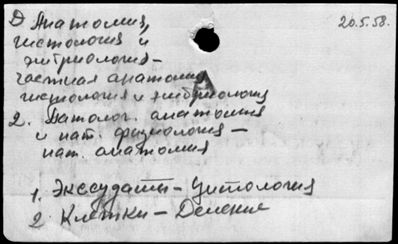 1) Анатомия, 20.5.58.
гистология и
эмбриология –
частная анатомия
гистология и эмбриология
2. Патолог. анатомия
и пат. физиология –
пат. анатомия
А
1. Экссудаты – Цитология
2. Клетки – Деление